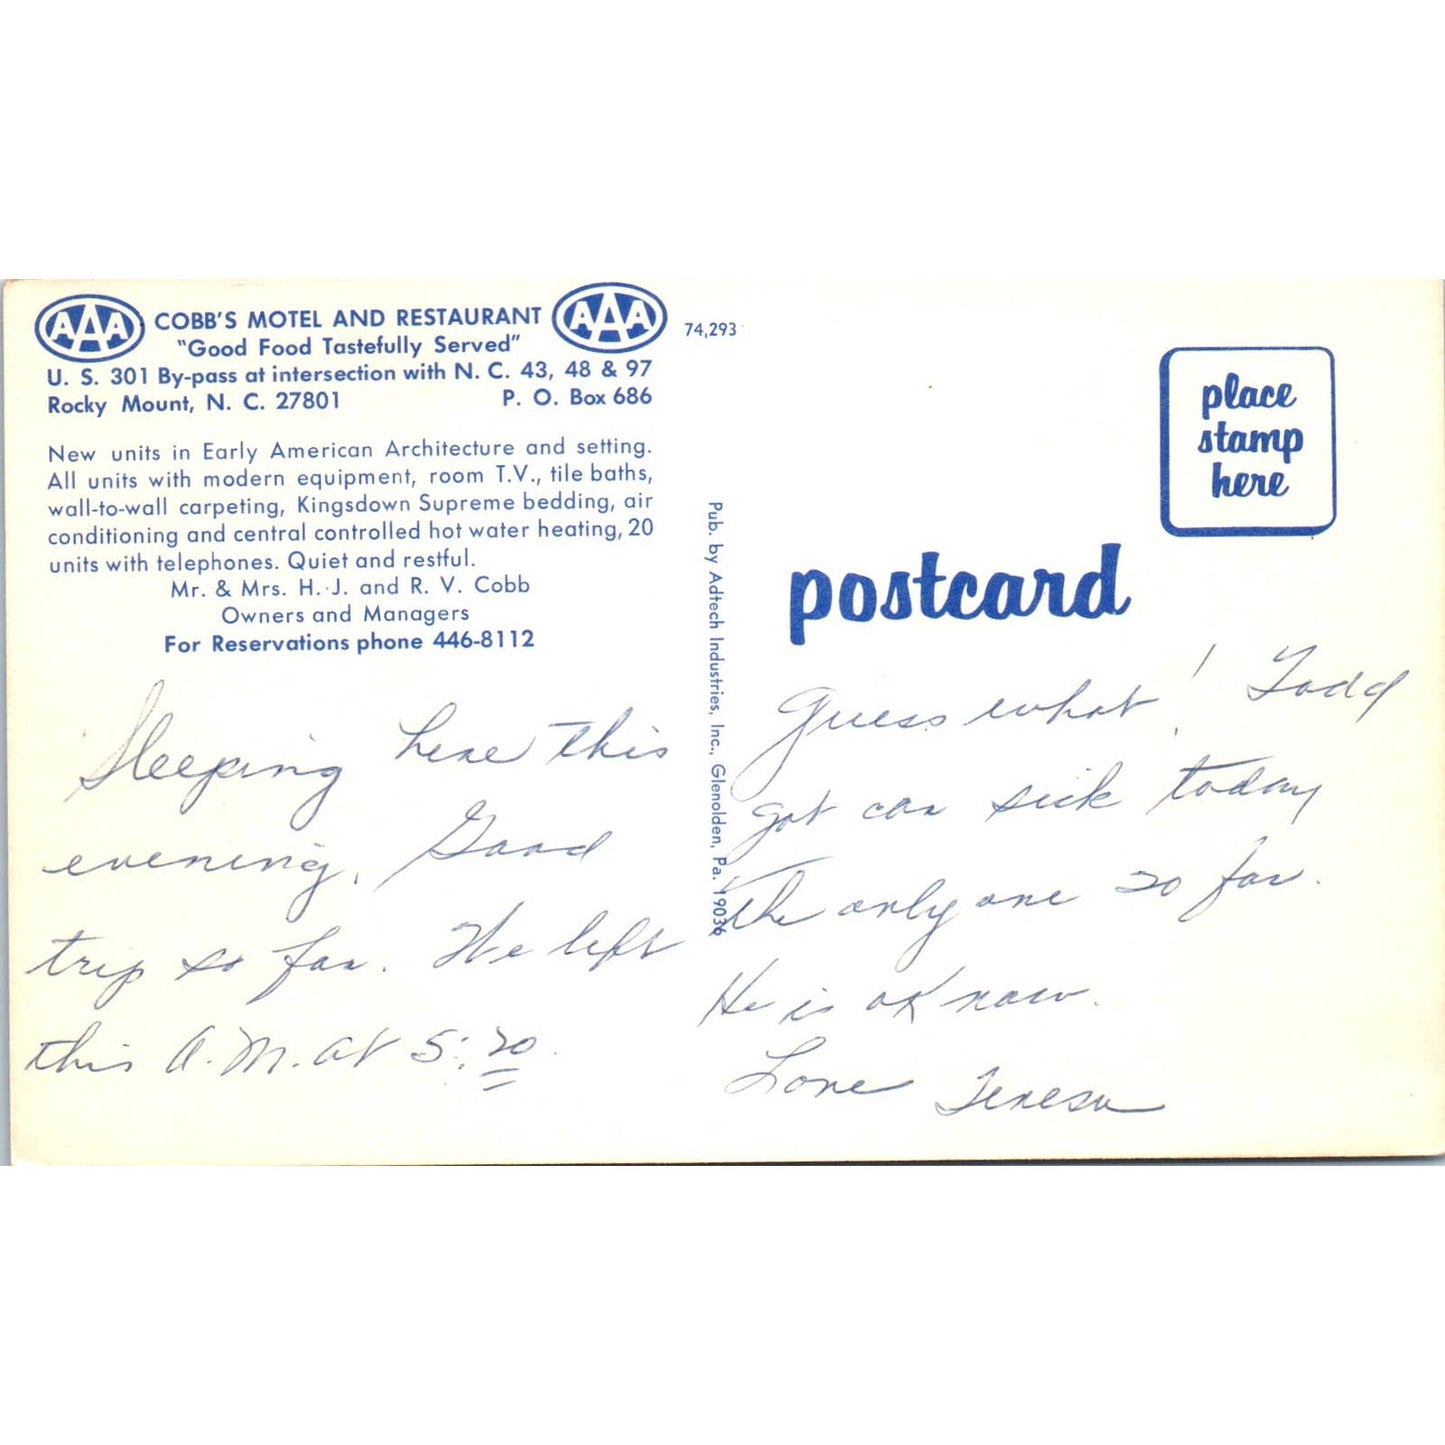 AAA
COBB'S MOTEL AND RESTAURANT
AAA
"Good Food Tastefully Served"
U. S. 301 By-pass at intersection with N. C. 43, 48 & 97
Rocky Mount, N. C. 27801 P. O. Box 686
New units in Early American Architecture and setting.
All units with modern equipment, room T.V., tile baths,
wall-to-wall carpeting, Kingsdown Supreme bedding, air
conditioning and central controlled hot water heating, 20
units with telephones. Quiet and restful.
Mr. & Mrs. H. J. and R. V. Cobb
Owners and Managers
For Reservations phone 446-8112
Sleeping here this
evening. Good
trip so far. We left
this A.M. at 5:20.
74,293
Pub. by Adtech Industries, Inc., Glenolden, Pa. 19036
place
stamp
here
postcard
Guess what! Todd
got car sick today
the only one so far.
He is ok now.
Love Teresa